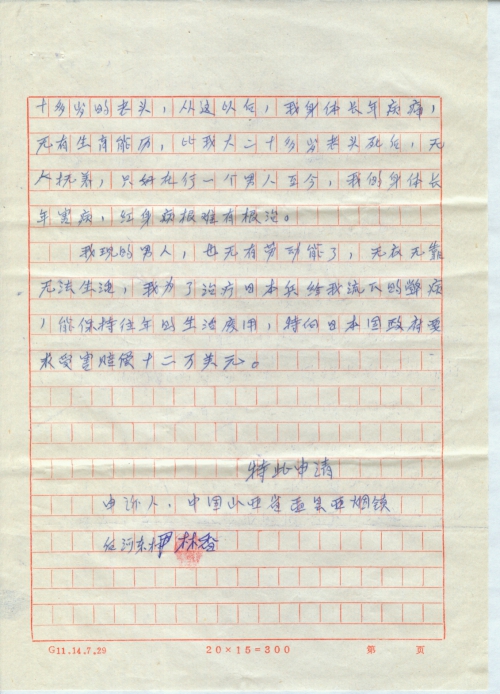 十多岁的老头，从这以后，我身体长年疾病，
无有生产能历，比我大二十多岁老头死后，无
人抚养，只好另行一个男人至今，我的身体长
年害病，红身病根难有根治。
我现的男人，也无有劳动能了，无衣无靠
无法生活，我为了治疗日本兵给我流下的
，能保持住年的生活费用，特向日本国政府要
求受害赔偿十二万美元。
特此申请
申诉人：中国山西省盂县西烟镇
河东 林香
G11.14.7.29 20×15=300 第 页